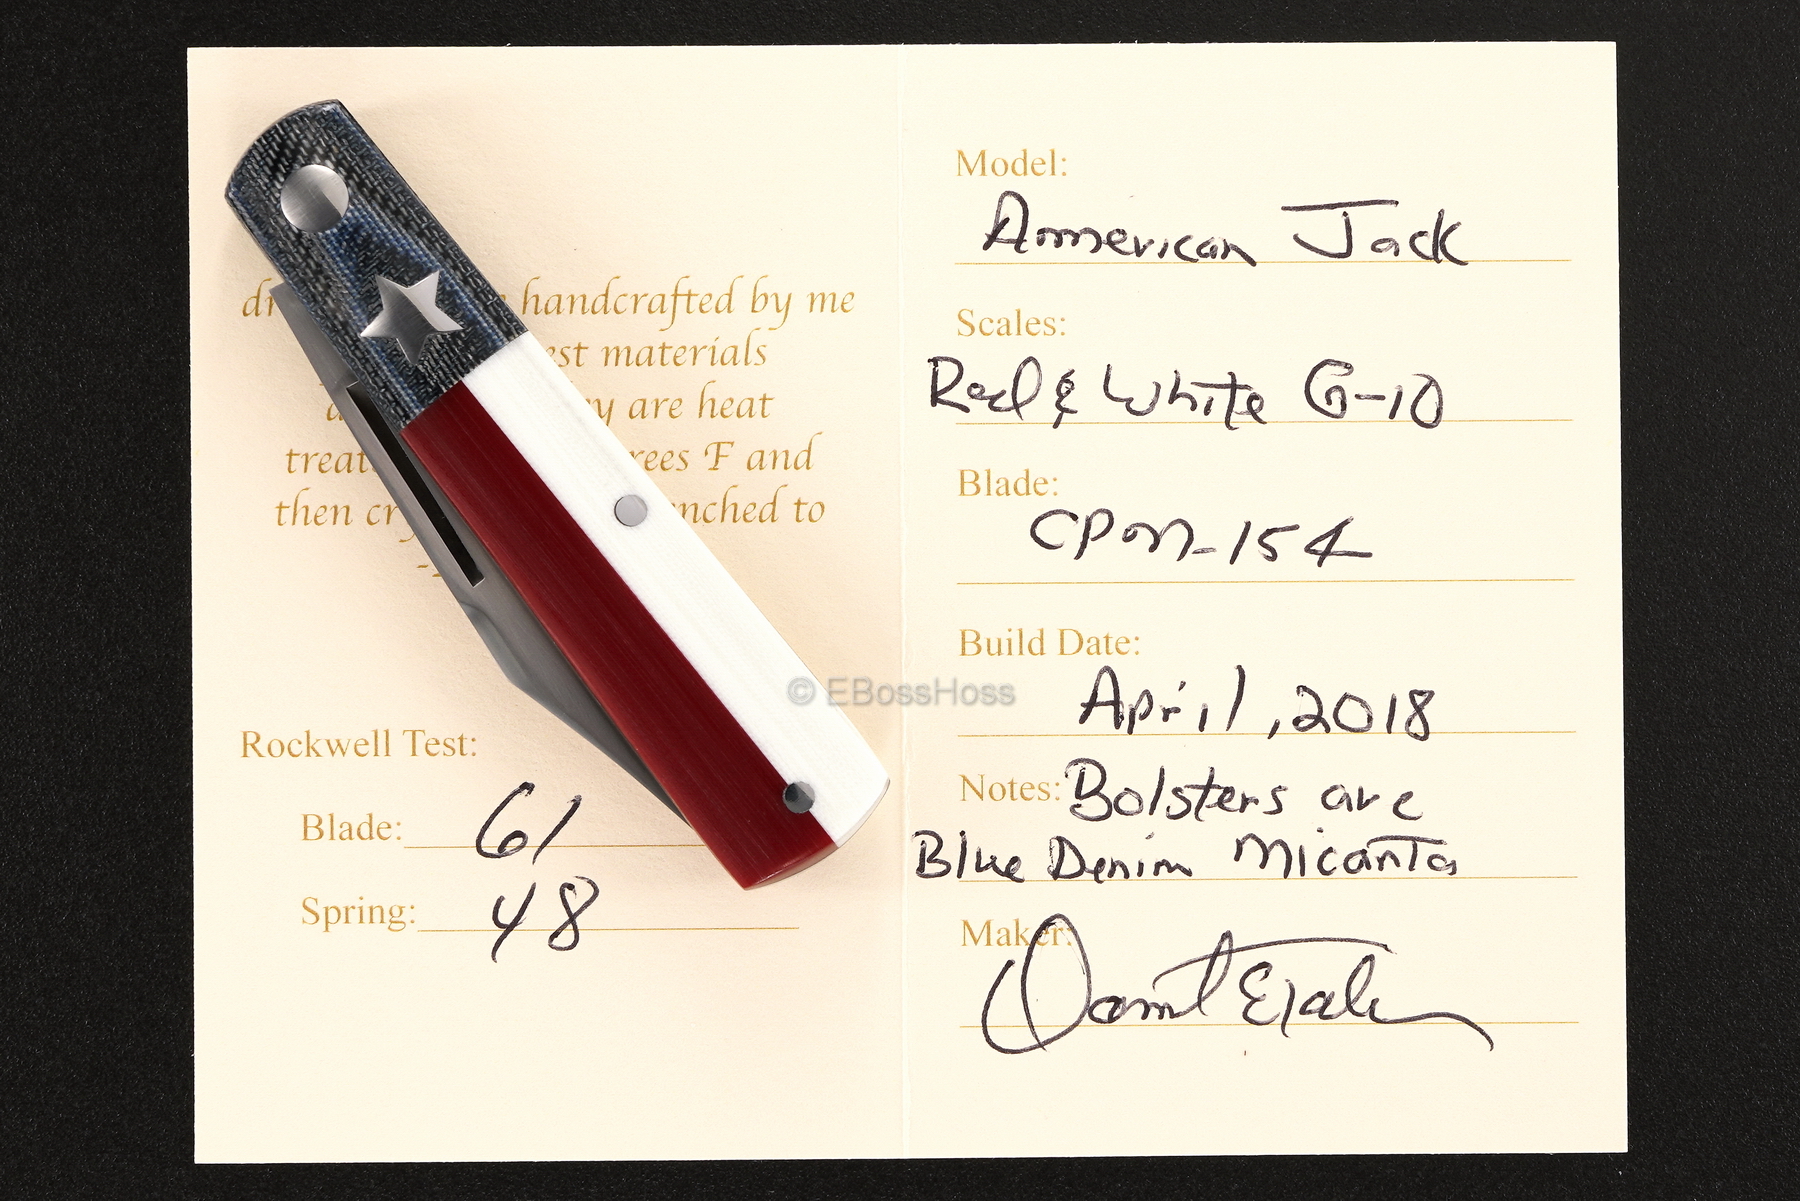 handcrafted by me
materials
are heat
F and
then
to
Rockwell Test:
Blade: 61
Spring: 48
Model:
American Jack
Scales:
Red & White G-10
Blade:
CPM-154
Build Date:
April, 2018
Notes: Bolsters are
Blue Denim Micarta
Maker:
© EBossHoss